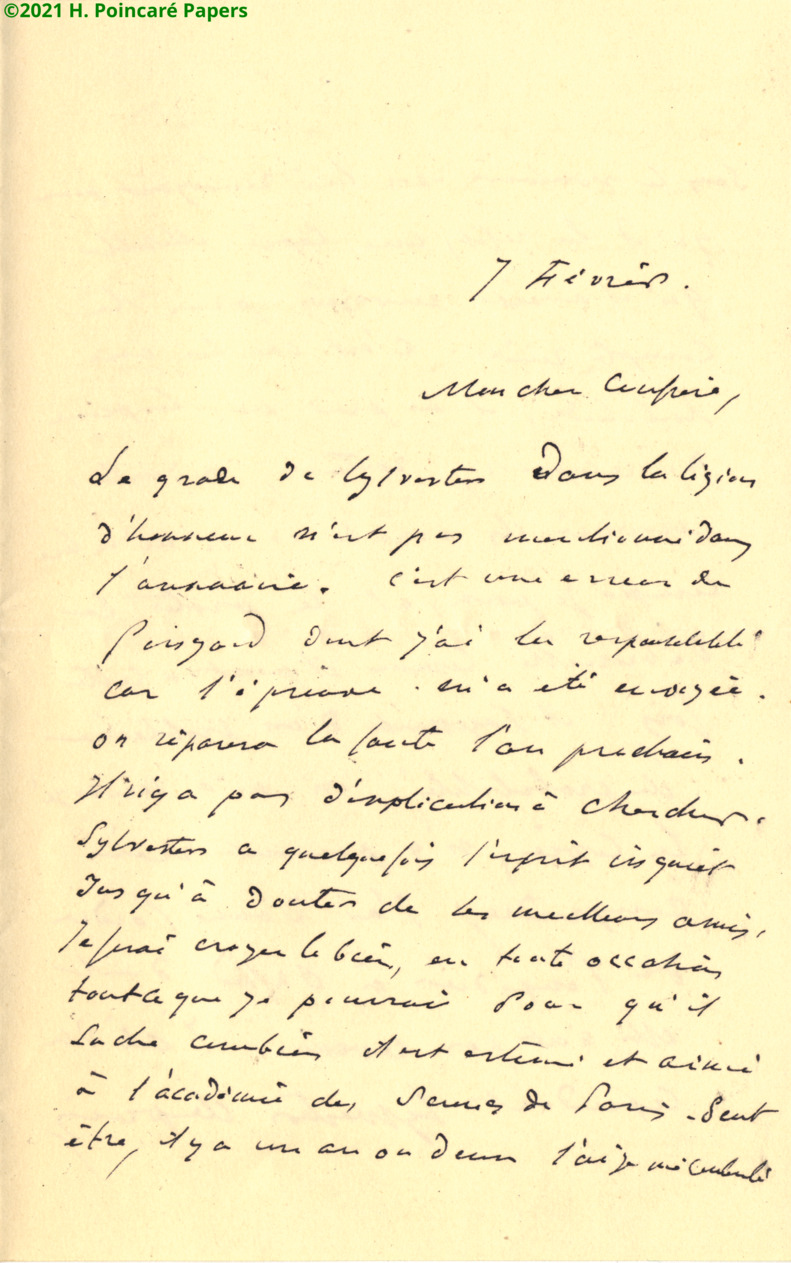 ©2021 H. Poincaré Papers
7 Février.
Mon cher Confrère,
Le grade de Sylvester dans la légion
d'honneur n'est pas mentionné dans
l'annuaire. C'est une erreur de
dont j'ai la responsabilité
car l'épreuve m'a été envoyée.
on réparera la faute l'an prochain.
Il n'y a pas d'explication à chercher.
Sylvester a quelquefois l'esprit inquiet
Jusqu'à douter de ses meilleurs amis.
Je ferai croyez le bien, en toute occasion
tout ce que je pourrai pour qu'il
sache combien il est estimé et aimé
à l'académie des Sciences de Paris. Peut
être, il y a un an ou deux l'ai je mécontenté